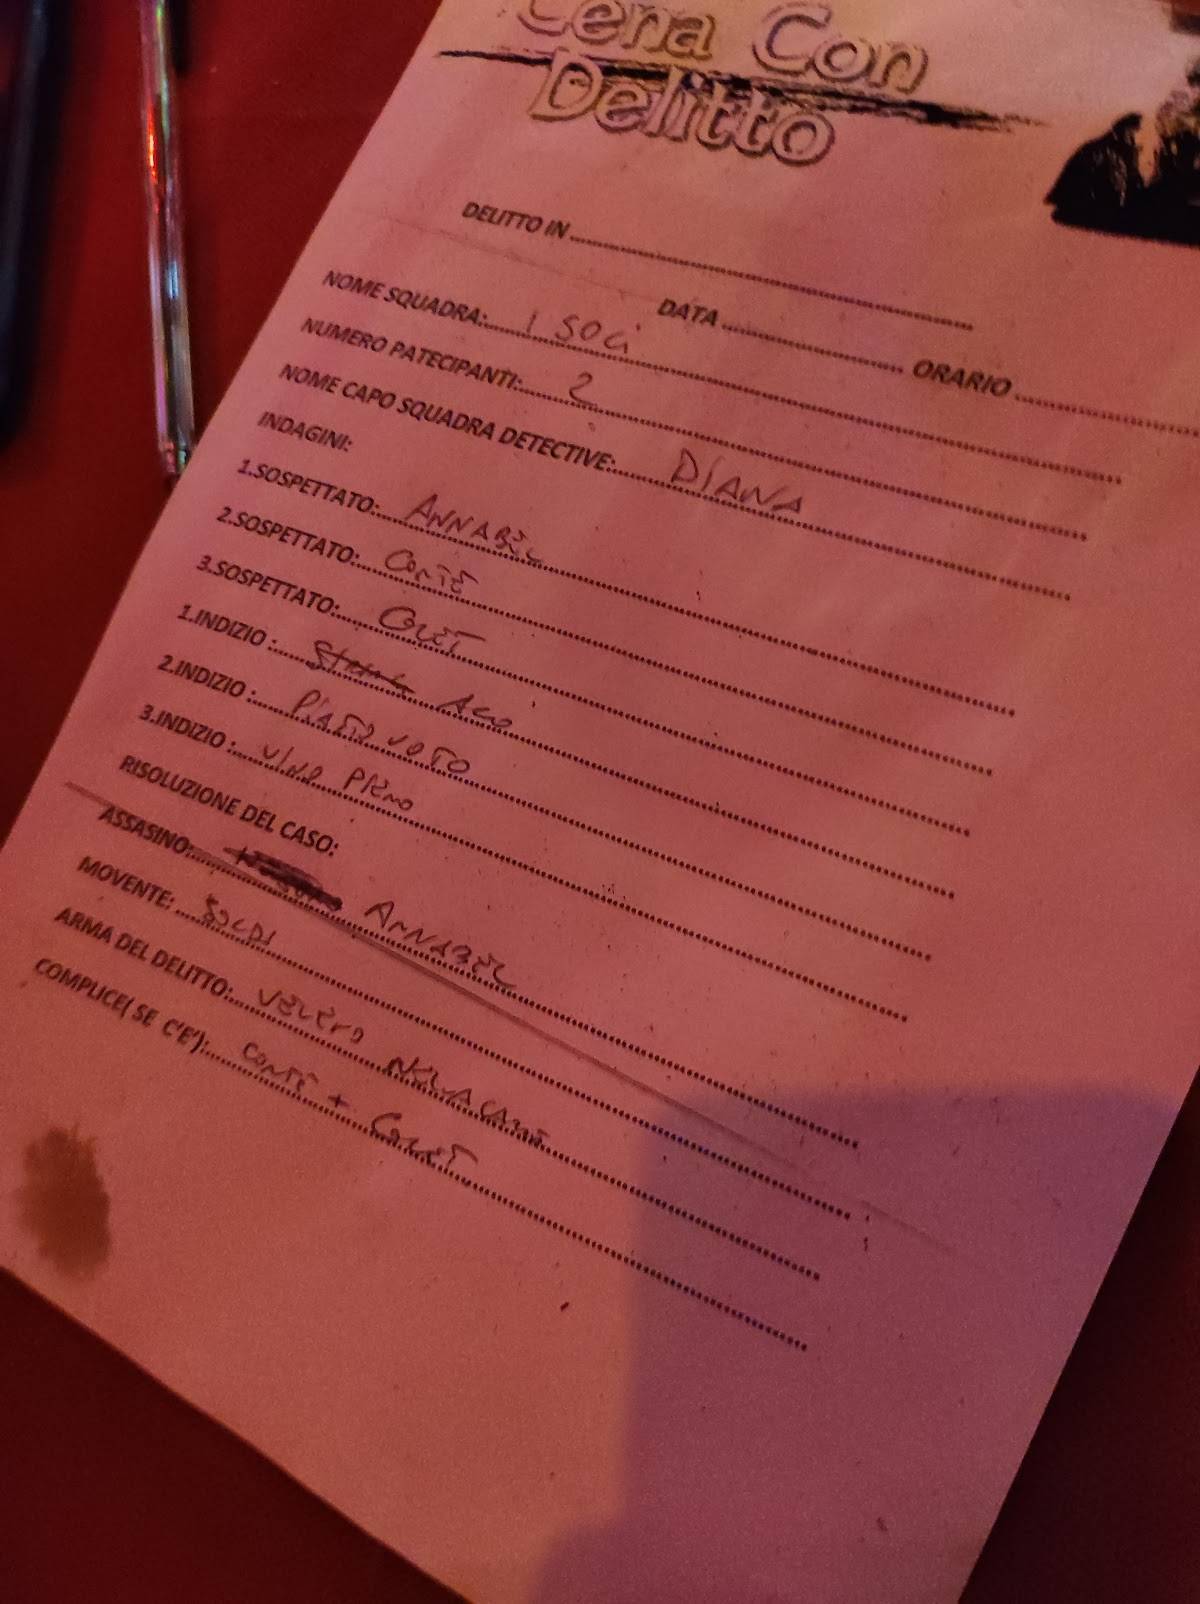 Cena Con
Delitto
DELITTO IN
DATA ORARIO
NOME SQUADRA: I SOCi
NUMERO PATECIPANTI: 2
NOME CAPO SQUADRA DETECTIVE: DIANA
INDAGINI:
1.SOSPETTATO: ANNABEL
2.SOSPETTATO: CONTE
3.SOSPETTATO: COLET
1.INDIZIO : AGO
2.INDIZIO : PIATTO VUOTO
3.INDIZIO : VINO PIENO
RISOLUZIONE DEL CASO:
ASSASINO: ANNABEL
MOVENTE: SOLDI
ARMA DEL DELITTO: VELENO NELLA CARNE
COMPLICE( SE C'E'): CONTE + COLET